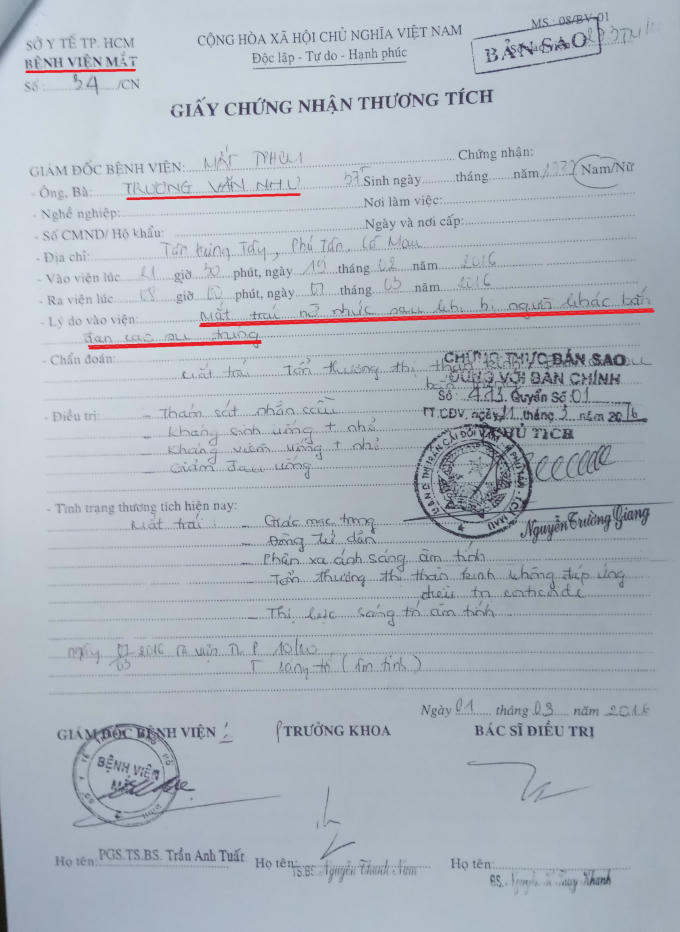 SỞ Y TẾ TP. HCM
BỆNH VIỆN MẮT
Số : 34 /CN
CỘNG HÒA XÃ HỘI CHỦ NGHĨA VIỆT NAM
Độc lập - Tự do - Hạnh phúc
MS : 08/BV-01
BẢN SAO
GIẤY CHỨNG NHẬN THƯƠNG TÍCH
GIÁM ĐỐC BỆNH VIỆN: MẮT TPHCM Chứng nhận:
- Ông, Bà: TRƯƠNG VĂN NHU Sinh ngày tháng năm Nam/Nữ
- Nghề nghiệp: Nơi làm việc:
- Số CMND/ Hộ khẩu: Ngày và nơi cấp:
- Địa chỉ: Tân Hưng Tây, Phú Tân, Cà Mau
- Vào viện lúc 21 giờ 30 phút, ngày 19 tháng 02 năm 2016
- Ra viện lúc 08 giờ 00 phút, ngày 01 tháng 03 năm 2016
- Lý do vào viện: Mắt trái mờ nhức sau khi bị người khác bắn
đạn cao su trúng
- Chẩn đoán:
Mắt trái Tổn thương thị thần kinh
CHỨNG THỰC BẢN SAO
ĐÚNG VỚI BẢN CHÍNH
Số Quyển Số 01
TT.CĐV, ngày 11 tháng 3 năm 2016
CHỦ TỊCH
- Điều trị: - Thám sát nhãn cầu
- Kháng sinh uống + nhỏ
- Kháng viêm uống + nhỏ
- Giảm đau uống
Nguyễn Trường Giang
- Tình trạng thương tích hiện nay:
Mắt trái: - Giác mạc trong
- Đồng tử dãn
- Phản xạ ánh sáng âm tính
- Tổn thương thị thần kinh không đáp ứng
điều trị corticoide
- Thị lực sáng tối âm tính
ngày 01/03 2016 ra viện TL P 10/10
T sáng tối (âm tính)
Ngày 01 tháng 03 năm 2016
GIÁM ĐỐC BỆNH VIỆN TRƯỞNG KHOA BÁC SĨ ĐIỀU TRỊ
BỆNH VIỆN
MẮT
Họ tên: PGS.TS.BS. Trần Anh Tuất Họ tên: TS.BS. Nguyễn Thanh Nam Họ tên:
BS. Khanh